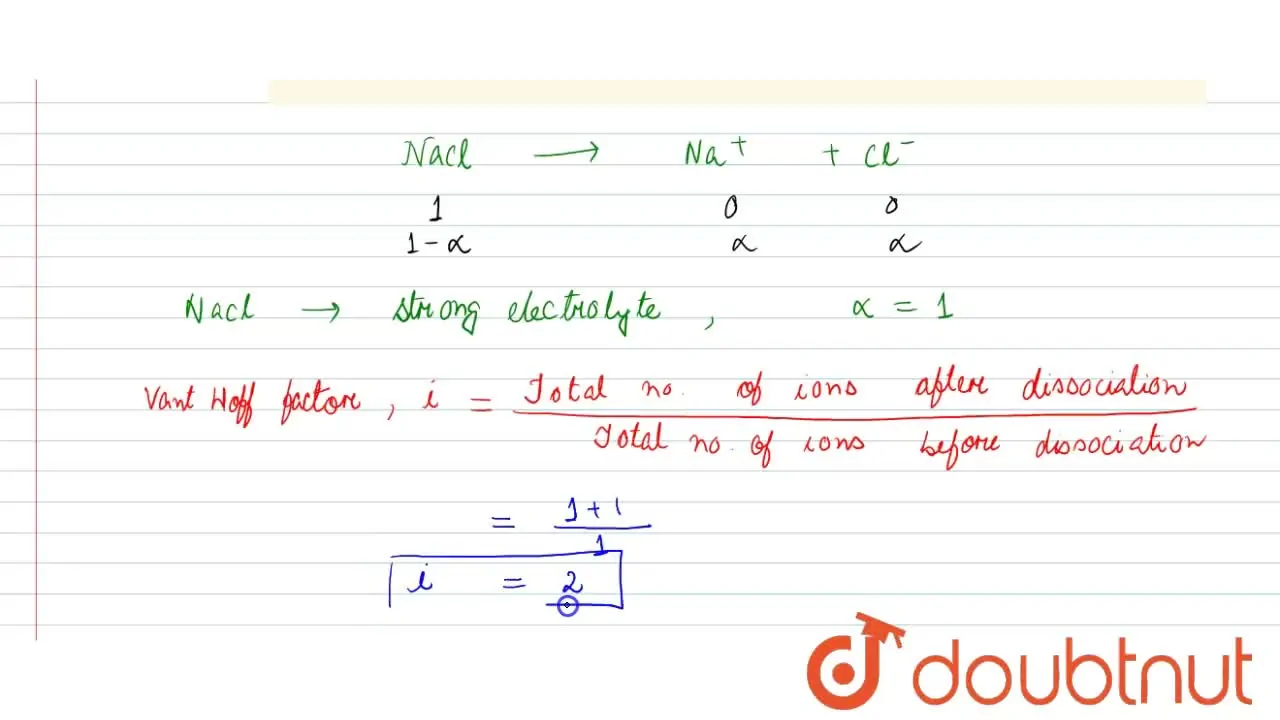 Nacl → Na⁺ + Cl⁻
1 0 0
1-α α α
Nacl → strong electrolyte, α = 1
Vant Hoff factore, i = Total no. of ions aftere dissociation
Total no. of ions before dissociation
= 1+1
1
i = 2
doubtnut